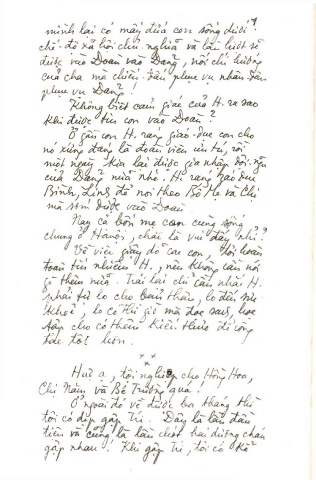 mình lại có mấy đứa con sống dưới
chế độ xã hội chủ nghĩa và lần lượt sẽ
được vào Đoàn vào Đảng, nối chí hướng
của cha mà chiến đấu phục vụ nhân dân
phục vụ Đảng!
Không biết cảm giác của H. ra sao
khi được tin con vào Đoàn?
Ở gần con H. ráng giáo dục con cho
nó xứng đáng là đoàn viên ưu tú, rồi
một ngày kia lại được gia nhập đội ngũ
của Đảng nữa nhé. H. ráng giáo dục
Bình, Linh để nối theo Bố Mẹ và Chị
mà sớm được vào Đoàn.
Nay cả bốn mẹ con cùng sống
chung ở Hà nội, chắc là vui đấy nhỉ?
Về việc giáo dục các con, tôi hoàn
toàn tín nhiệm H., nên không cần nói
gì thêm nữa. Trái lại chỉ cần nhắc H.
phải tự lo cho bản thân, lo đến sức
khoẻ, lo có thì giờ mà đọc sách, học
tập cho có thêm kiến thức để công
tác tốt hơn.
Huê ạ, tội nghiệp cho Hồng Hoa,
Chị Năm và Bé Trường quá!
Ở ngoài đó về được ba tháng thì
tôi có dịp gặp Trí. Đây là lần đầu
tiên và cũng là lần chót hai đứa
gặp nhau! Khi gặp Trí, tôi có kể